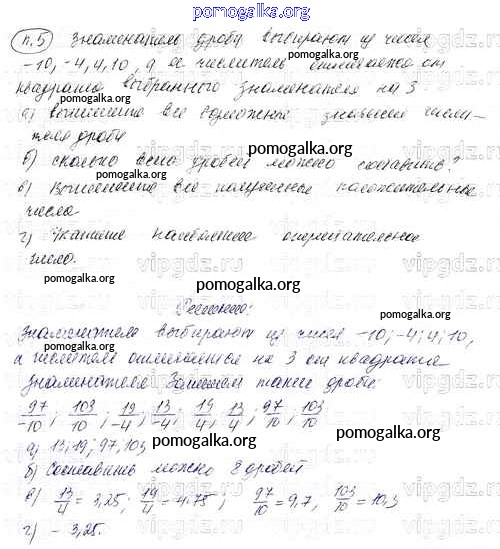 pomogalka.org
п.5 Знаменатель дроби выбирают из чисел
-10, -4, 4, 10, а ее числитель отличается от
квадрата выбранного знаменателя на 3
pomogalka.org
а) выпишите все возможные значения числи-
теля дроби
pomogalka.org
б) сколько всего дробей можно составить?
в) Выпишите все полученные положительные
числа
pomogalka.org
г) Укажите наибольшее отрицательное
число.
pomogalka.org
Решение:
pomogalka.org
Знаменатель выбирают из чисел -10; -4; 4; 10,
а числители отличные на 3 от квадрата
знаменателя. Запишем такие дроби:
97/-10; 103/10; 19/-4; 13/-4; 19/4; 13/4; 97/10; 103/10
pomogalka.org
а) 13; 19; 97, 103
б) Составить можно 8 дробей
в) 13/4 = 3,25; 19/4 = 4.75; 97/10 = 9,7, 103/10 = 10,3
pomogalka.org
г) - 3,25.